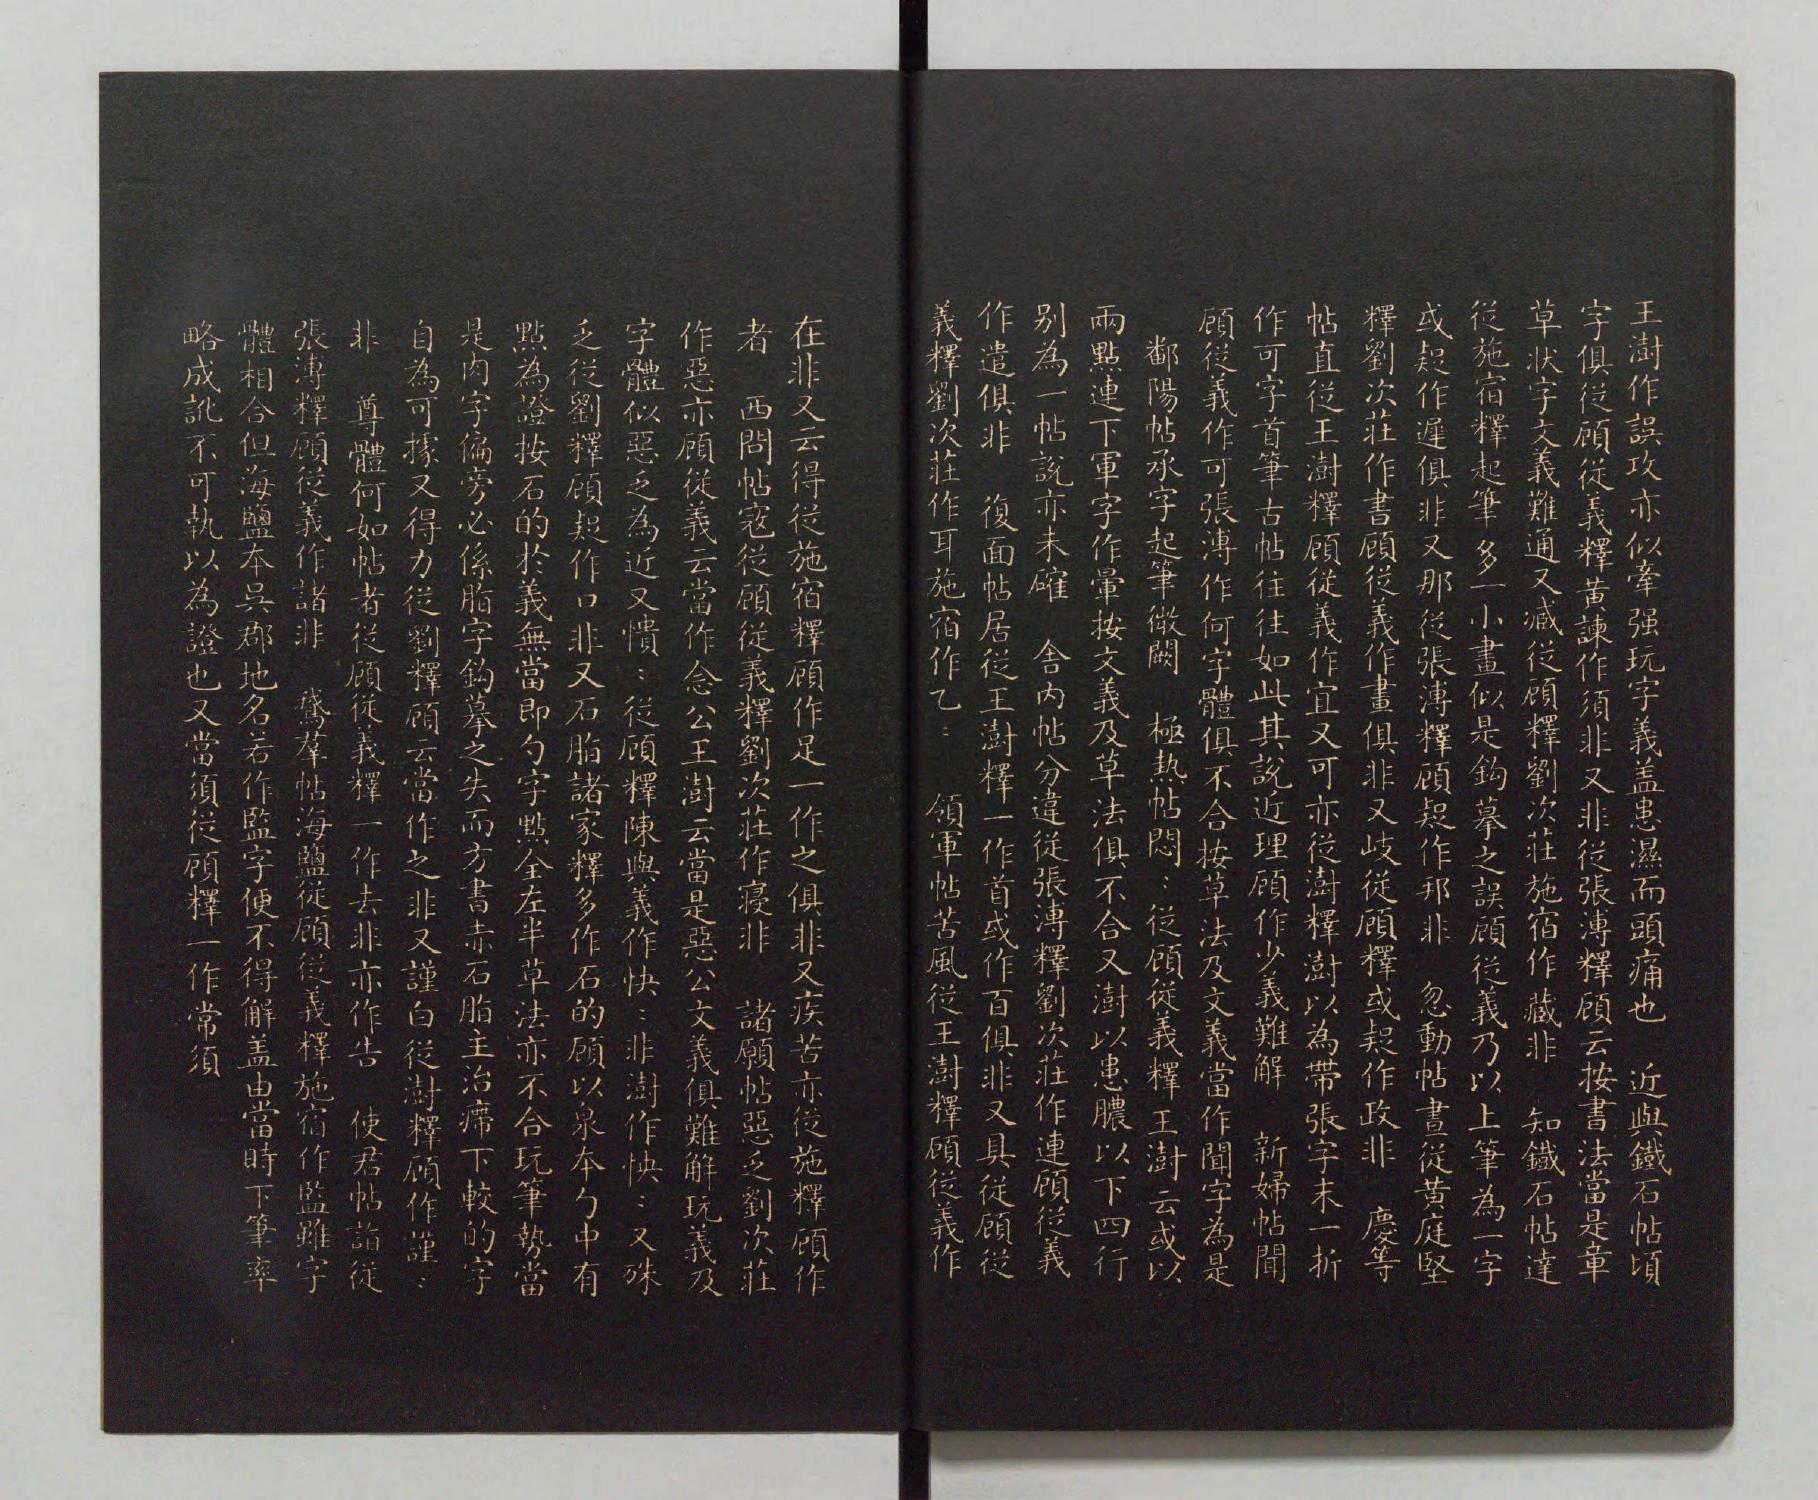 王澍作誤攷亦似牽强玩字義盖患濕而頭痛也　近與鐵石帖頃
字俱從顧從義釋黃諫作須非又非從張溥釋顧云按書法當是章
草狀字文義難通又臧從顧釋劉次莊施宿作藏非　知鐵石帖達
從施宿釋起筆多一小畫似是鈎摹之誤顧從義乃以上筆為一字
或疑作遲俱非又那從張溥釋顧疑作邦非　忽動帖晝從黃庭堅
釋劉次莊作書顧從義作畫俱非又歧從顧釋或疑作政非　慶等
帖直從王澍釋顧從義作宜又可亦從澍釋澍以為帶張字末一折
作可字首筆古帖往往如此其說近理顧作少義難解　新婦帖聞
顧從義作可張溥作何字體俱不合按草法及文義當作聞字為是
鄱陽帖承字起筆微闕　極熱帖悶〻從顧從義釋王澍云或以
兩點連下軍字作暈按文義及草法俱不合又澍以患膿以下四行
别為一帖說亦未確　舍内帖分違從張溥釋劉次莊作連顧從義
作遣俱非　復面帖居從王澍釋一作首或作百俱非又具從顧從
義釋劉次莊作耳施宿作乙〻　領軍帖苦風從王澍釋顧從義作
在非又云得從施宿釋顧作足一作之俱非又疾苦亦從施釋顧作
者　西問帖寇從顧從義釋劉次莊作寢非　諸願帖惡乏劉次莊
作惡亦顧從義云當作念公王澍云當是惡公文義俱難解玩義及
字體似惡乏為近又憒〻從顧釋陳與義作快〻非澍作怏〻又殊
乏從劉釋顧疑作口非又石脂諸家釋多作石的顧以泉本勺中有
點為證按石的於義無當即勺字點全左半草法亦不合玩筆勢當
是肉字偏旁必係脂字鈎摹之失而方書赤石脂主治癠下較的字
自為可據又得力從劉釋顧云當作之非又謹白從澍釋顧作謹〻
非　尊體何如帖者從顧從義釋一作去非亦作告　使君帖詣從
張溥釋顧從義作諸非　鵞羣帖海鹽從顧從義釋施宿作監雖字
體相合但海鹽本吳郡地名若作監字便不得解盖由當時下筆率
略成訛不可執以為證也又當須從顧釋一作常須